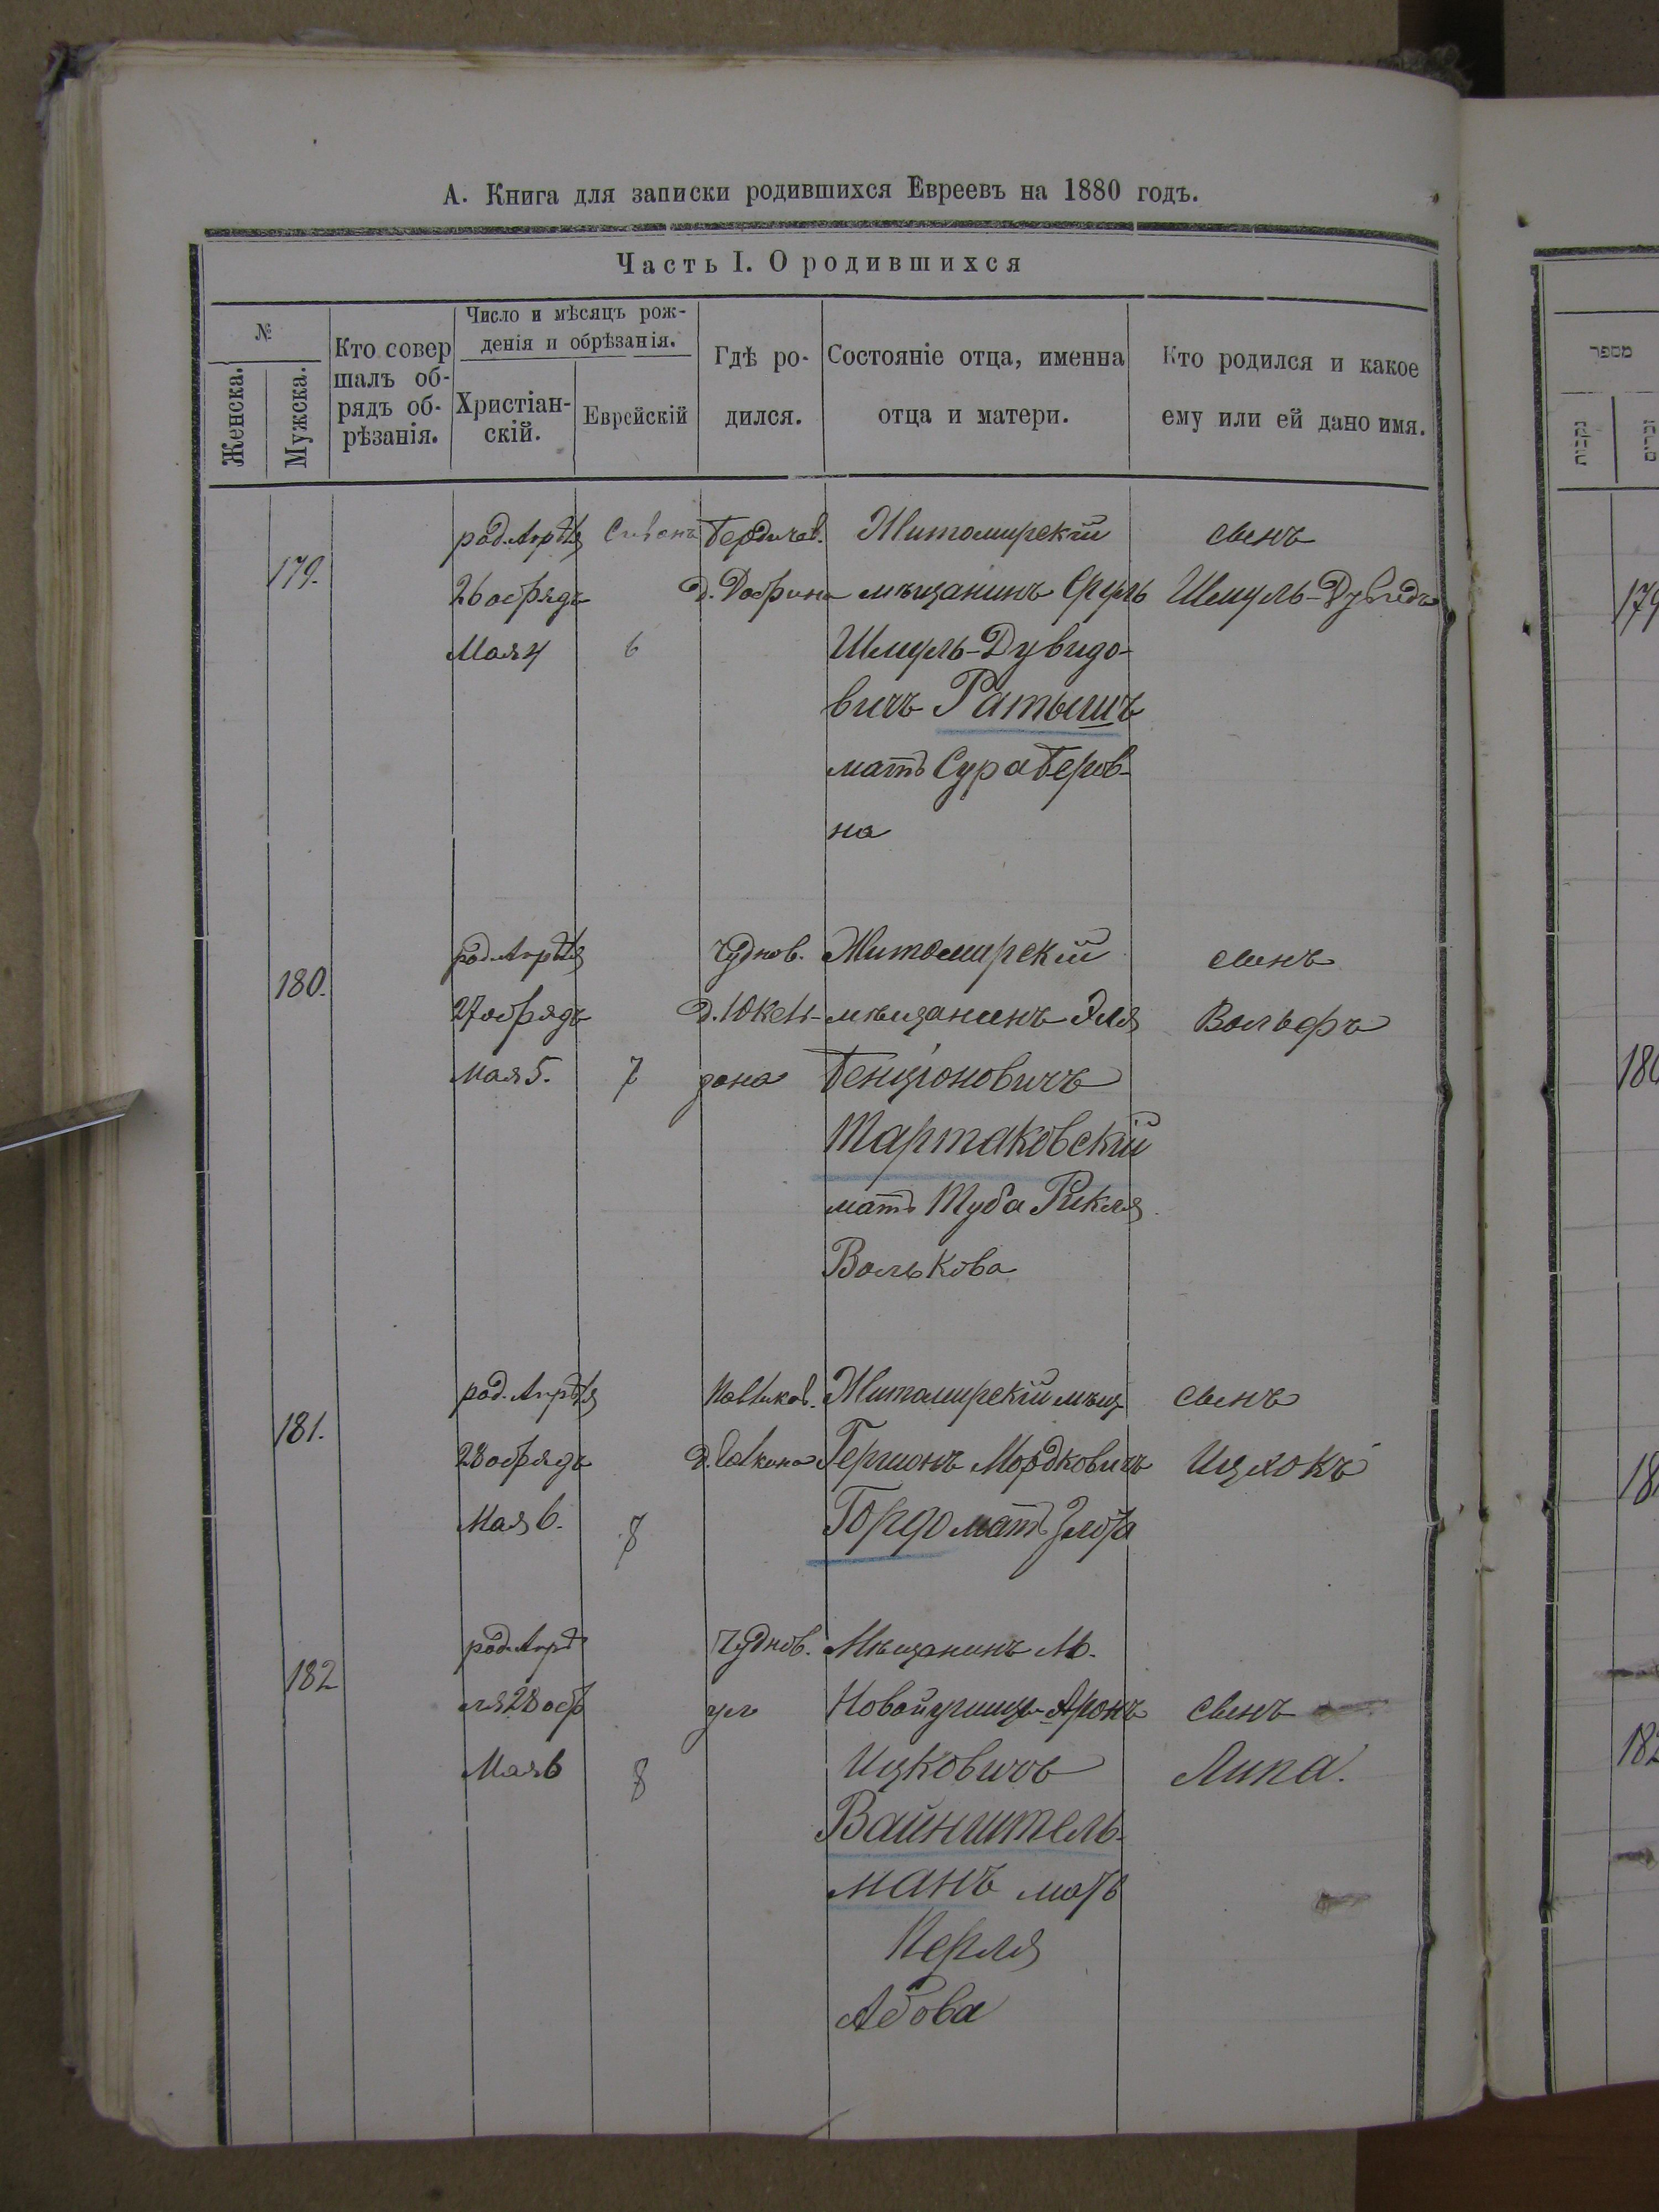 А. Книга для записки родившихся Евреевъ на 1880 годъ.
Часть I. О родившихся
№
Женска.
Мужска.
Кто совер
шалъ об-
рядъ об-
рѣзанія.
Число и мѣсяцъ рож-
денія и обрѣзанія.
Христіан-
скій.
Еврейскій
Гдѣ ро-
дился.
Состояніе отца, именна
отца и матери.
Кто родился и какое
ему или ей дано имя.
179.
род. Апрѣля
26 обрядъ
Мая 4
Сивонъ
6
Бердичев.
д. Добрина
Житомирскій
мѣщанинъ Сруль
Шмуль-Дувидо-
вичъ Ратышъ
мать Сура Беров-
на
сынъ
Шмуль-Дувидъ
180.
род. Апрѣля
27 обрядъ
Мая 5.
7
Чуднов.
д. Юкель-
зона
Житомирскій
мѣщанинъ Эля
Бенціоновичъ
Тартаковскій
мать Туба Рикля
Волькова
сынъ
Вольфъ
181.
род. Апрѣля
28 обрядъ
Мая 6.
8
Житомирскій мѣщ
Гершонъ Мордковичъ
Гордо мать Злота
сынъ
Ицхокъ
182
род. Апрѣ
ля 28 обр
Мая 6
8
Чуднов.
ул
Мѣщанинъ М.
Новойушицы Аронъ
Ицковичъ
Вайнштель-
манъ мать
Перля
Абова
сынъ
Липа.
מספר
נקבות
זכרים
179
180
18
182